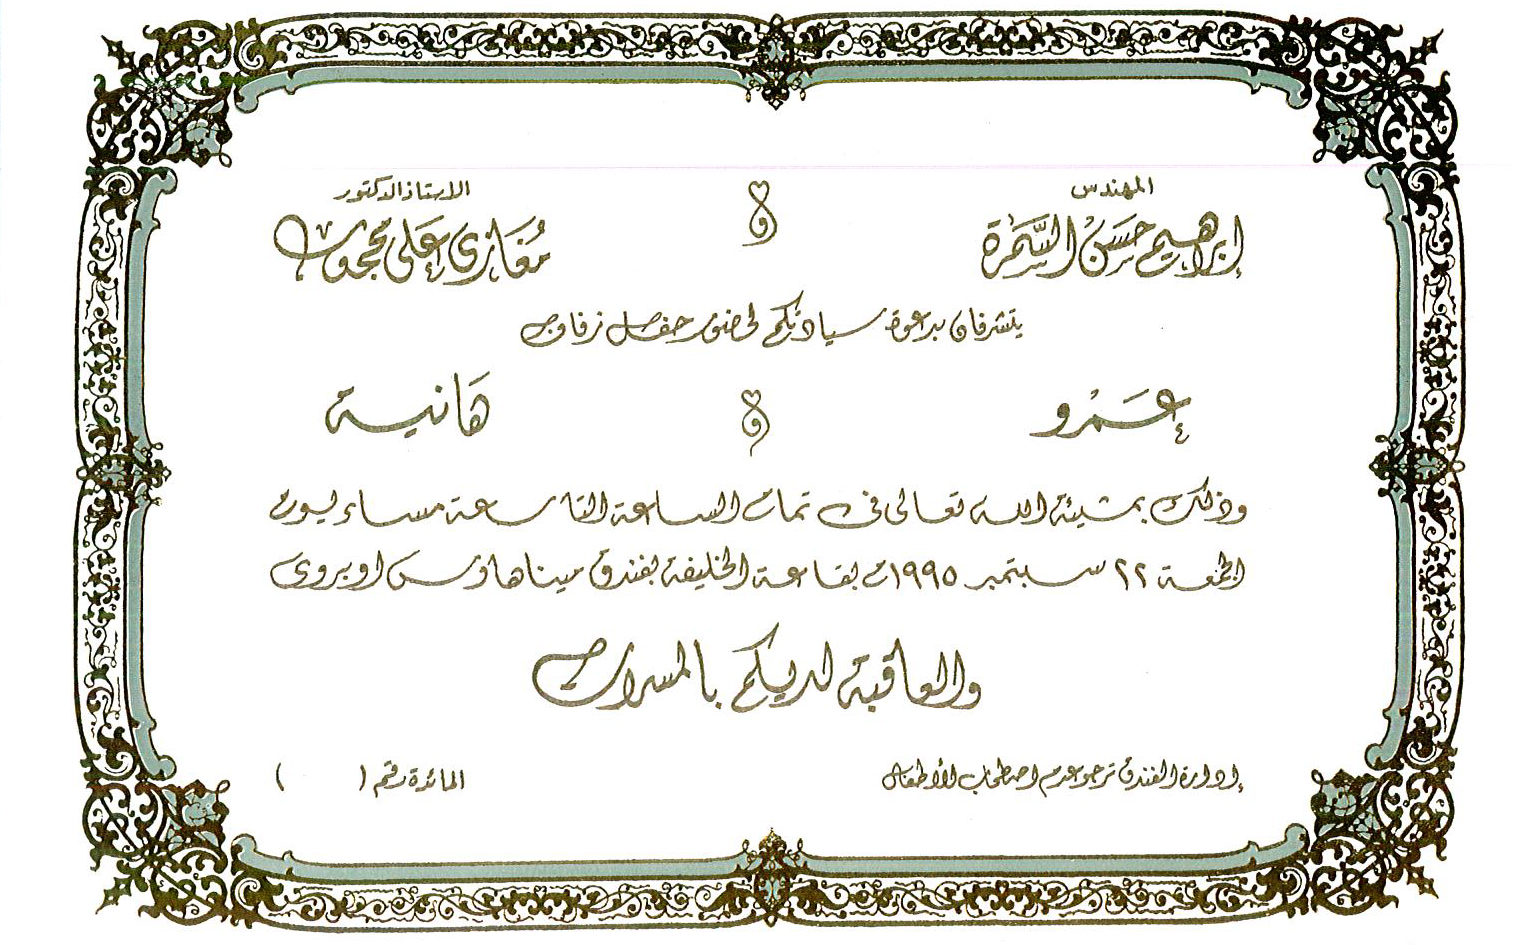 المهندس و الاستاذ الدكتور
إبراهيم حسن السمرة مغازى على محجوب
يتشرفان بدعوة سيادتكم لحضور حفل زفاف
عمرو و هانية
وذلك بمشيئة الله تعالى فى تمام الساعة التاسعة مساء يوم
الجمعة ٢٢ سبتمبر ١٩٩٥م بقاعة الخليفة بفندق ميناهاوس اوبروى
والعاقبة لديكم بالمسرات
إدارة الفندق ترجو عدم اصطحاب الأطفال المائدة رقم ( )